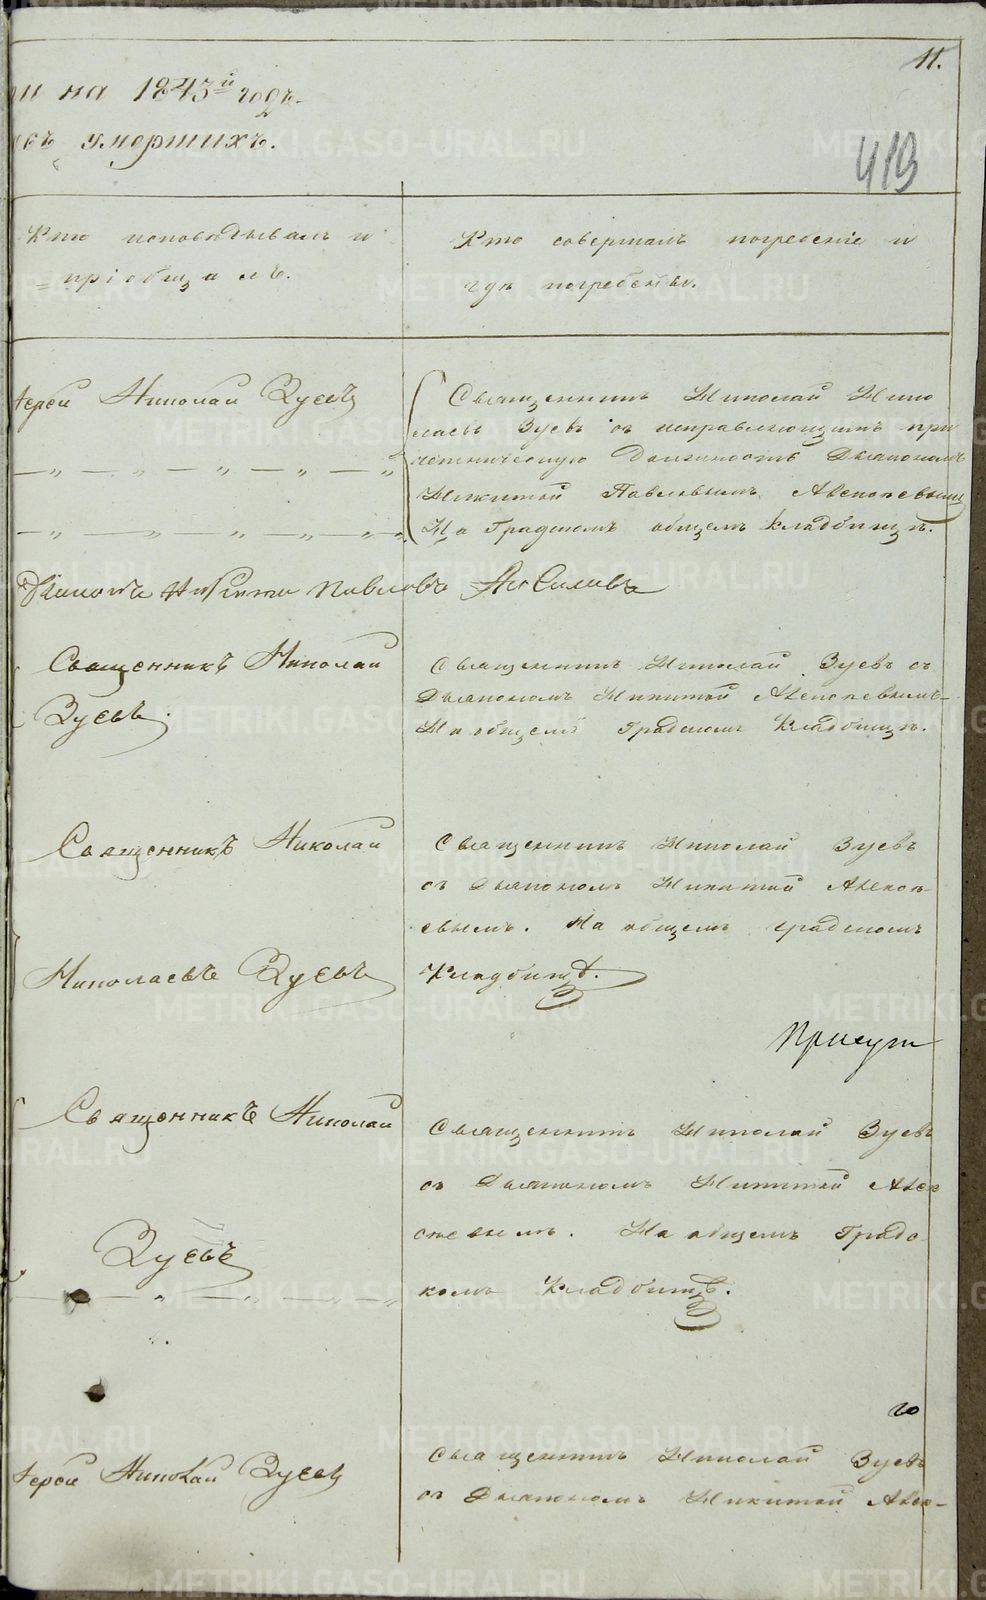 11.
на 1843й годъ.
умершихъ.
419
Кто исповѣдывалъ и
= пріобщалъ.
Кто совершалъ погребеніе и
гдѣ погребены.
Іерей Николай Зуевъ
Священникъ Николай Нико
лаевъ Зуевъ съ исправляющимъ при
четническую Должность Дьякономъ
Никитой Павловымъ
На Градскомъ общемъ кладбищѣ.
Дьяконъ Никита Павловъ
Священникъ Николай
Зуевъ.
Священникъ Николай Зуевъ съ
Дьякономъ Никитой
На общемъ Градскомъ Кладбищѣ.
Священникъ Николай
Николаевъ Зуевъ
Священникъ Николай Зуевъ
съ Дьякономъ Никитой
евымъ. На общемъ градскомъ
Кладбищѣ.
Присут
Священникъ Николай
Зуевъ
Священникъ Николай Зуевъ
съ Дьякономъ Никитой
На общемъ Градс
комъ Кладбищѣ.
го
Іерей Николай Зуевъ
Священникъ Николай Зуевъ
съ Дьякономъ Никитой
METRIKI.GASO-URAL.RU